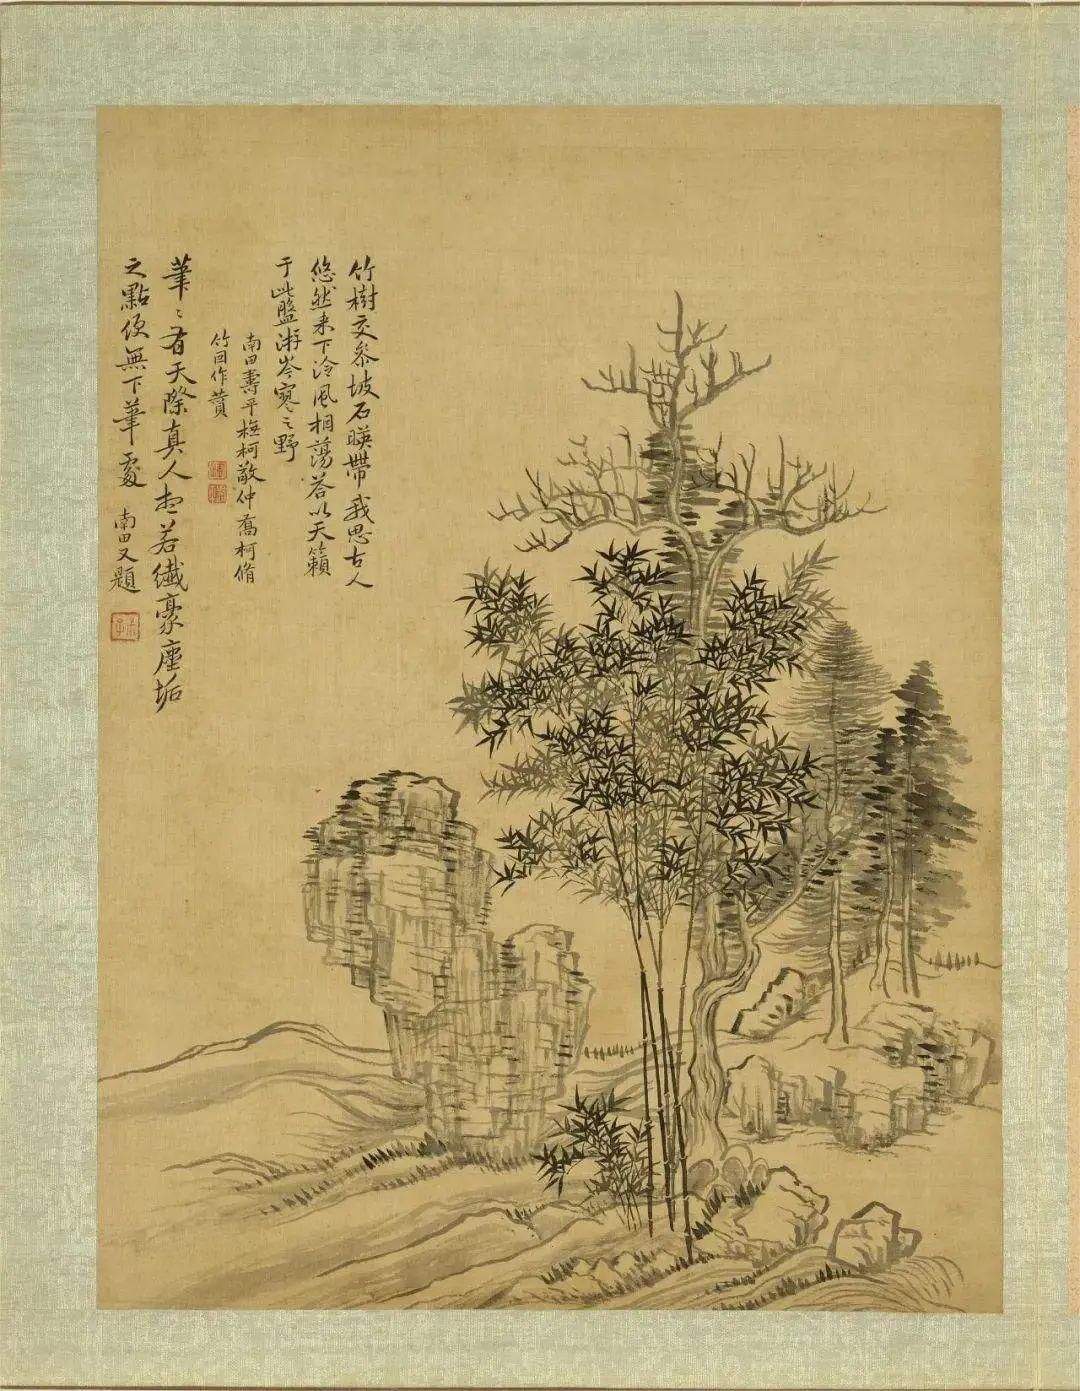 竹樹交參坡石暎帶我思古人
悠然来下泠風相蕩荅以天籟
于此盤游岑寒之野
南田壽平橅柯敬仲喬柯脩
竹因作贊
筆〻有天際真人想若纎豪塵垢
之點便無下筆處 南田又題